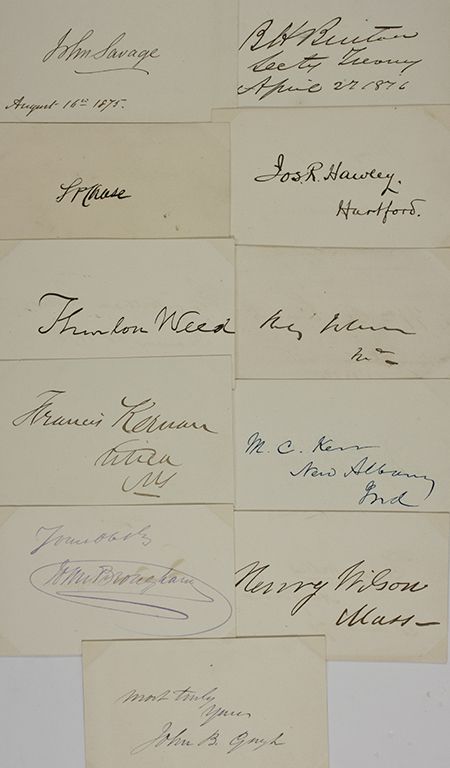 John Savage
August 16th 1875.
B H Bristow
Secty Treasury
April 27 1876
S P Chase
Jos. R. Hawley.
Hartford.
Thurlow Weed
Francis Kernan
Utica
NY
M. C. Kerr
New Albany
Ind
John Brougham
Henry Wilson
Mass
most truly
Yours
John B. Gough